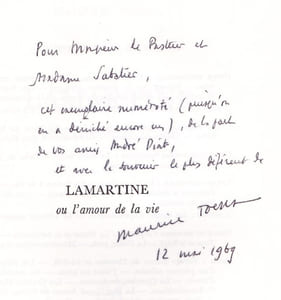 Pour Monsieur le Pasteur et
Madame Sabatier,
cet exemplaire numéroté (puisqu'on
en a déniché encore un), de la part
de vos amis André Diot,
et avec le souvenir le plus déférent de
LAMARTINE
ou l'amour de la vie
Maurice Toesca
12 mai 1969